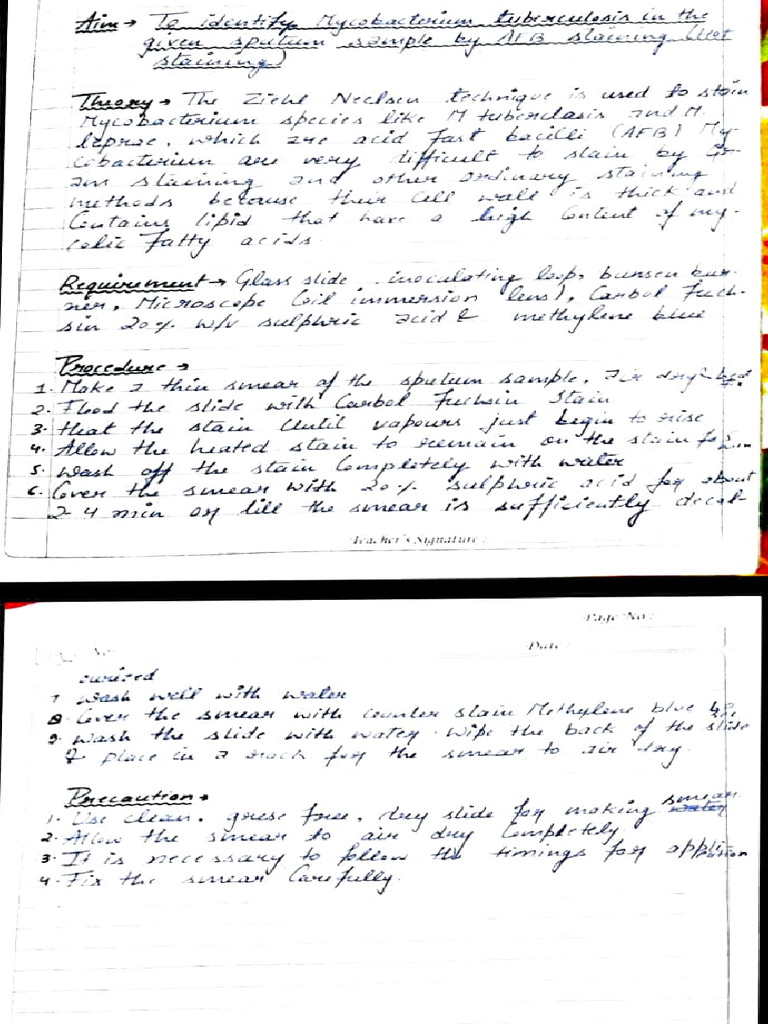 Aim → To identify Mycobacterium tuberculosis in the
given sputum sample by AFB staining (Hot
staining)
Theory → The Ziehl Neelsen technique is used to stain
Mycobacterium species like M tuberclosis and M.
leprae, which are acid fast bacilli (AFB) My-
cobacterium are very difficult to stain by Gr-
am staining and other ordinary staining
methods because their cell wall is thick and
Contains lipid that have a high Content of my-
colic fatty acids.
Requirement → Glass slide, inoculating loop, bunsen bur-
ner, Microscope (oil immersion lens), Carbol Fuch-
sin 20% w/v sulphric acid & methylene blue
Procedure →
1. Make a thin smear of the sputum sample, Air dry &
2. Flood the slide with Carbol Fuchsin Stain
3. Heat the stain Until vapours just begin to rise
4. Allow the heated stain to remain on the stain for
5. Wash off the stain Completely with water
6. Cover the smear with 20% sulphuric acid for about
2-4 min or till the smear is sufficiently decol-
Teacher's Signature :
Page No :
Date :
ourized
7 Wash well with water
8. Cover the smear with counter stain Methylene blue
9. Wash the slide with water. Wipe the back of the slide
& place in a rack for the smear to air dry.
Precaution →
1. Use clean, grese free, dry slide for making smear
2. Allow the smear to air dry Completely.
3. It is necessary to follow the timings for
4. Fix the smear Carefully.